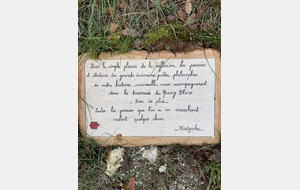 Pour le simple plaisir de la réflexion, les pensées
et citations des grands écrivains, poètes, philosophes
de notre histoire universelle, vous accompagneront
dans la traversée du
Rien de plus...
Seules les pensées que l'on a en marchant
valent quelque chose.
Nietzsche